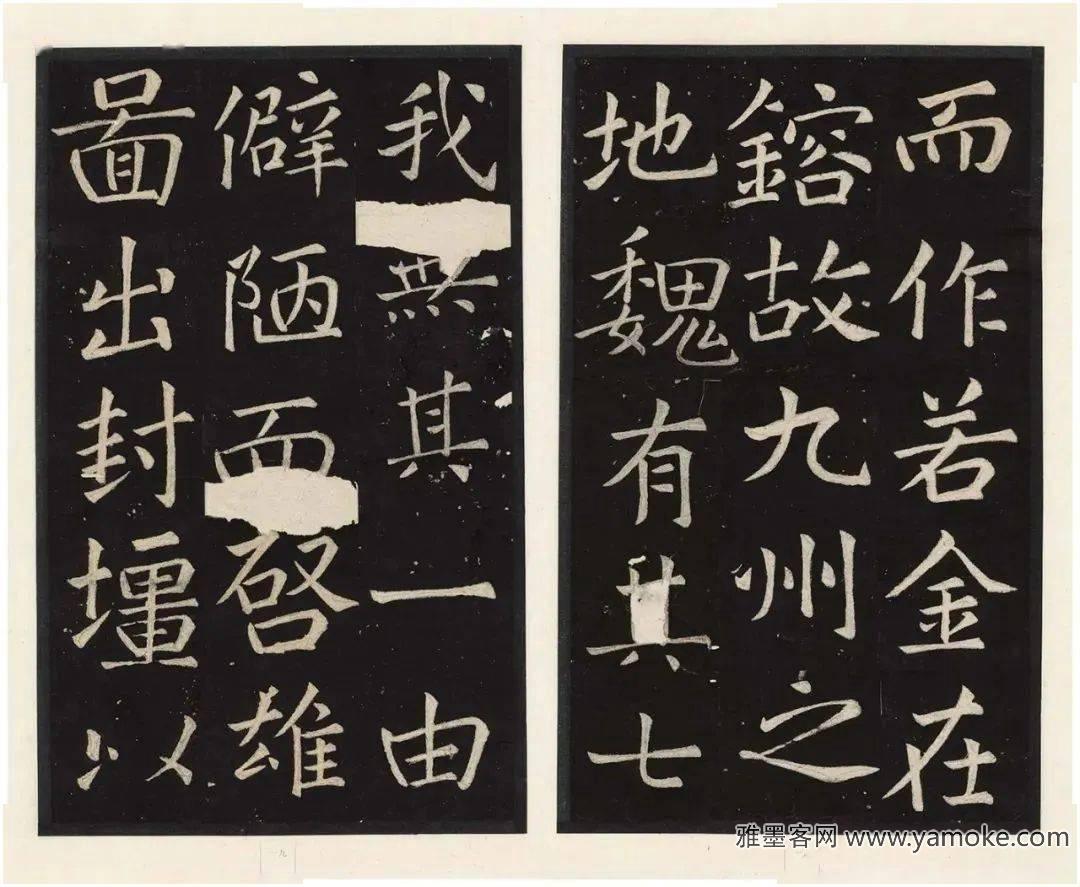 而作若金在
鎔故九州之
地魏有其七
我無其一由
僻陋而啓雄
圖出封壃以
雅墨客网 www.yamoke.com